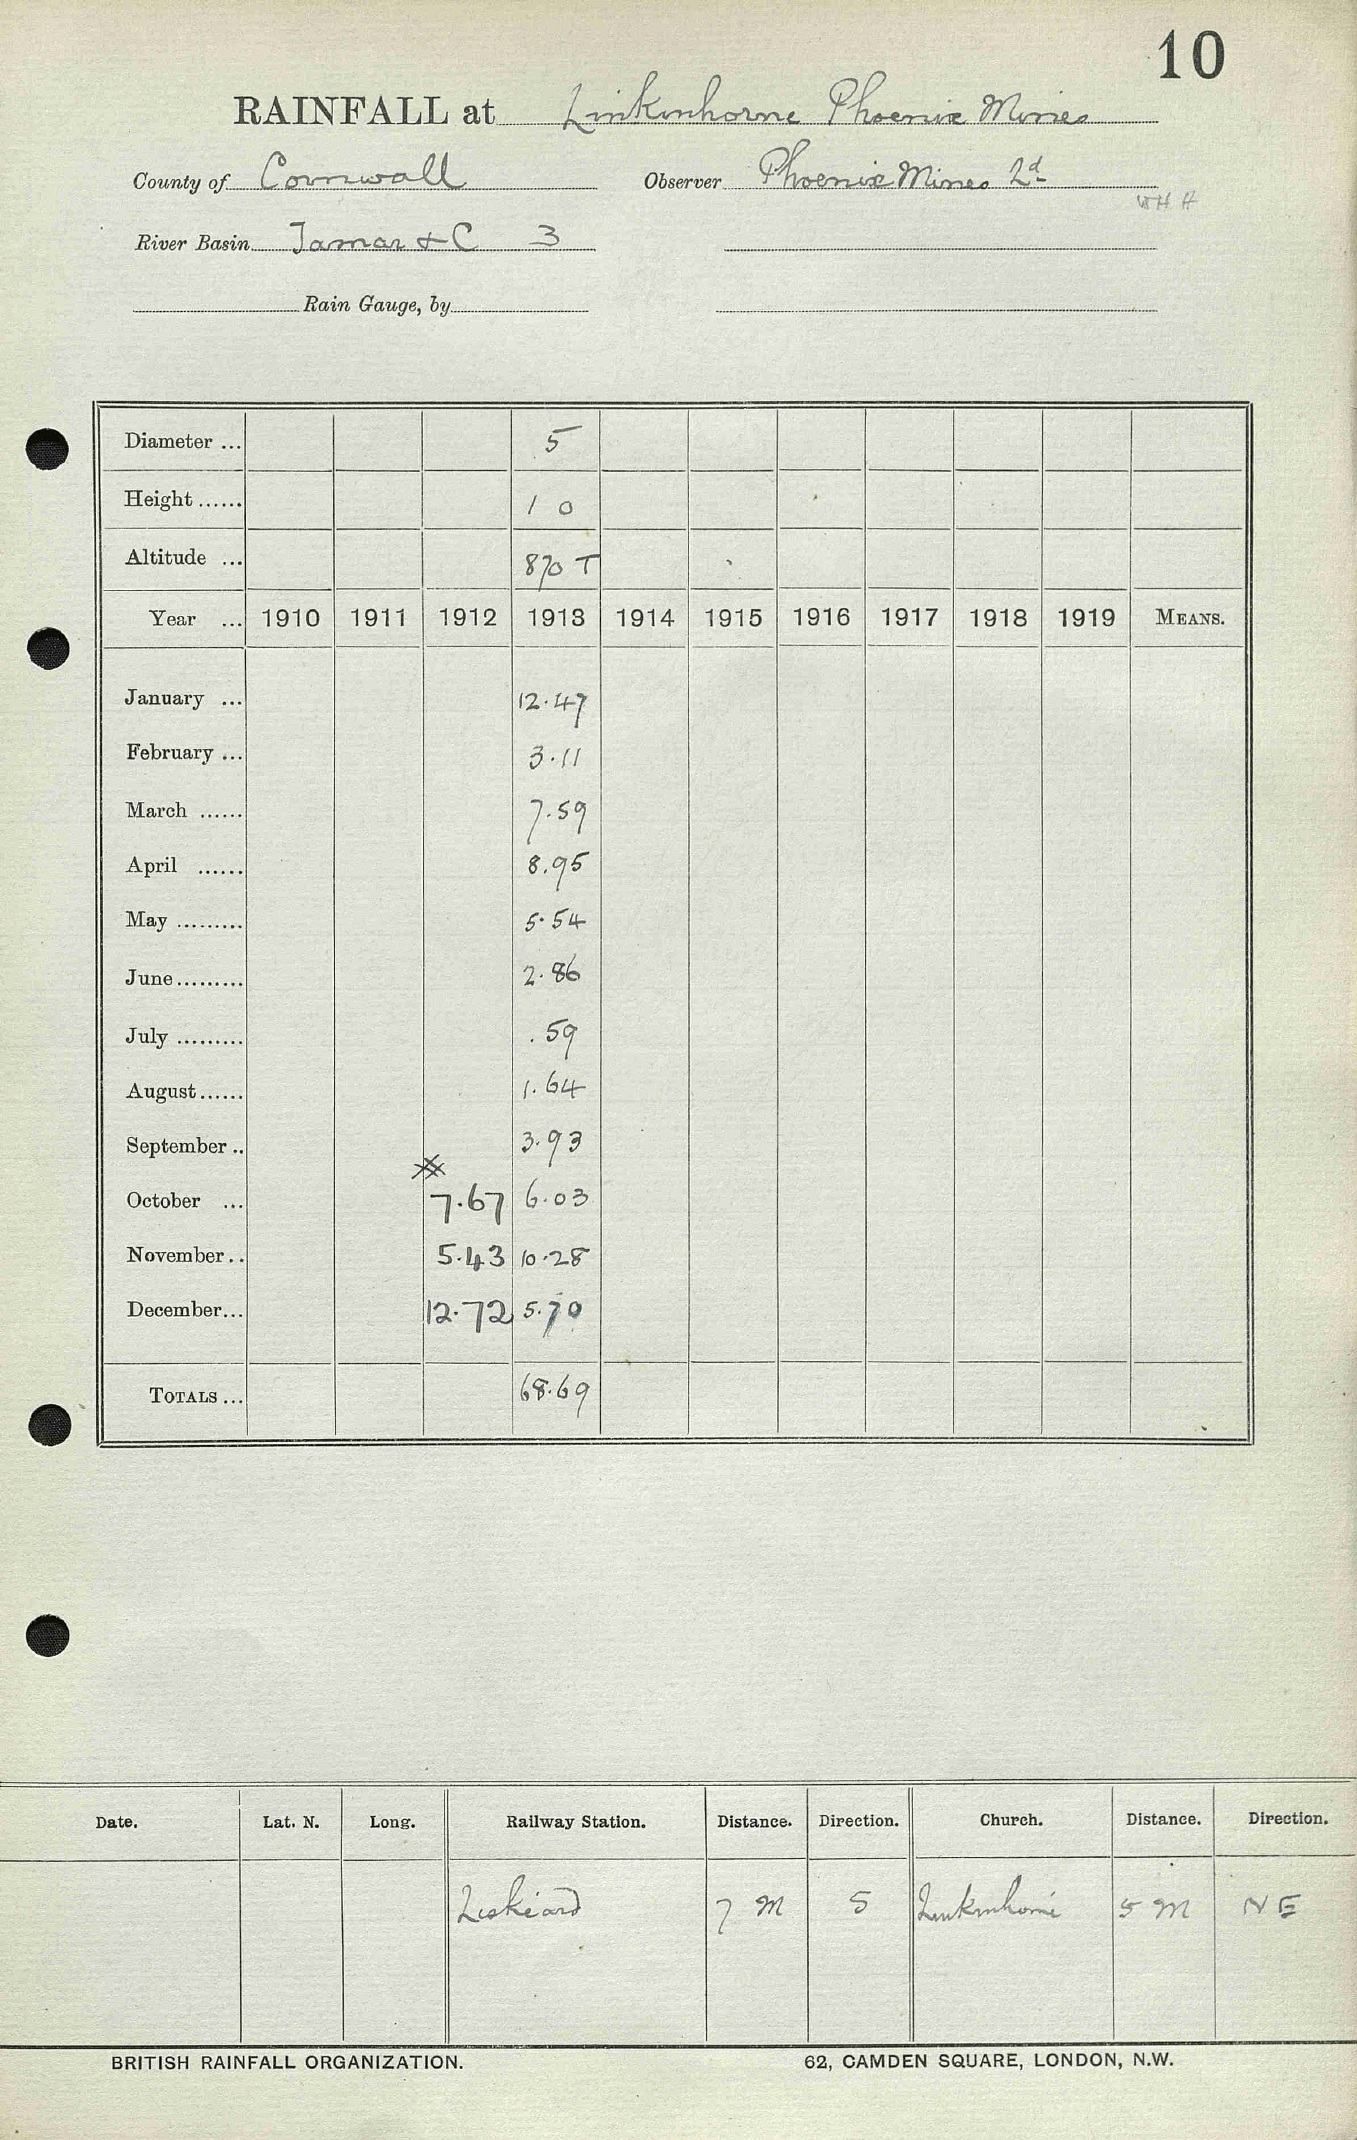 10
RAINFALL at Linkinhorne Phoenix Mines
County of Cornwall Observer Phoenix Mines Ld
W H A
River Basin Tamar & C 3
Rain Gauge, by
Diameter ... 5
Height ...... 1 0
Altitude ... 870 T
Year ... 1910 1911 1912 1913 1914 1915 1916 1917 1918 1919 MEANS.
January ... 12.47
February ... 3.11
March ...... 7.59
April ...... 8.95
May ......... 5.54
June ......... 2.86
July ......... .59
August ...... 1.64
September .. 3.93
October ... 7.67 6.03
November .. 5.43 10.28
December ... 12.72 5.70
TOTALS ... 68.69
Date. Lat. N. Long. Railway Station. Distance. Direction. Church. Distance. Direction.
Liskeard 7 M S Linkinhorne 5 M N E
BRITISH RAINFALL ORGANIZATION. 62, CAMDEN SQUARE, LONDON, N.W.